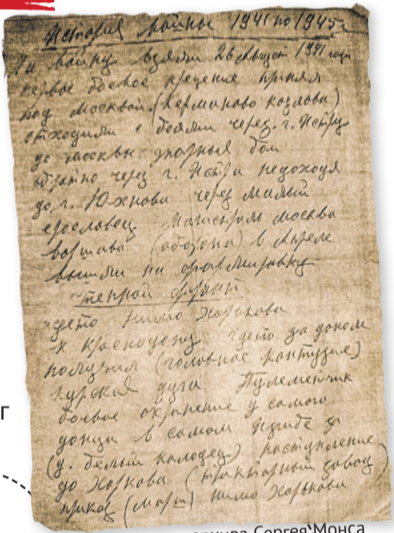 История войны 1941 по 1945г
На войну взяли 26 август 1941 года
первое боевое крещение принял
под москвой. (Кермоново козлова)
отходили с боями через г. Истру
до москвы упорные бои
обратно через г. Истра недоходя
до г. Юхнова через малый
ерославец магистраль москва
варшава (оборона) в апреле
вышли на формировку
степной фронт
гдето мимо харькова
к краснодону где то за доном
получил (головное контузие)
курская дуга Пулеметчик
боевое охранение у самого
донца в самом
(д. белый колодец) наступление
до харкова (тракторный завод)
приказ (марш) мимо харькова
г
архива Сергея Монса